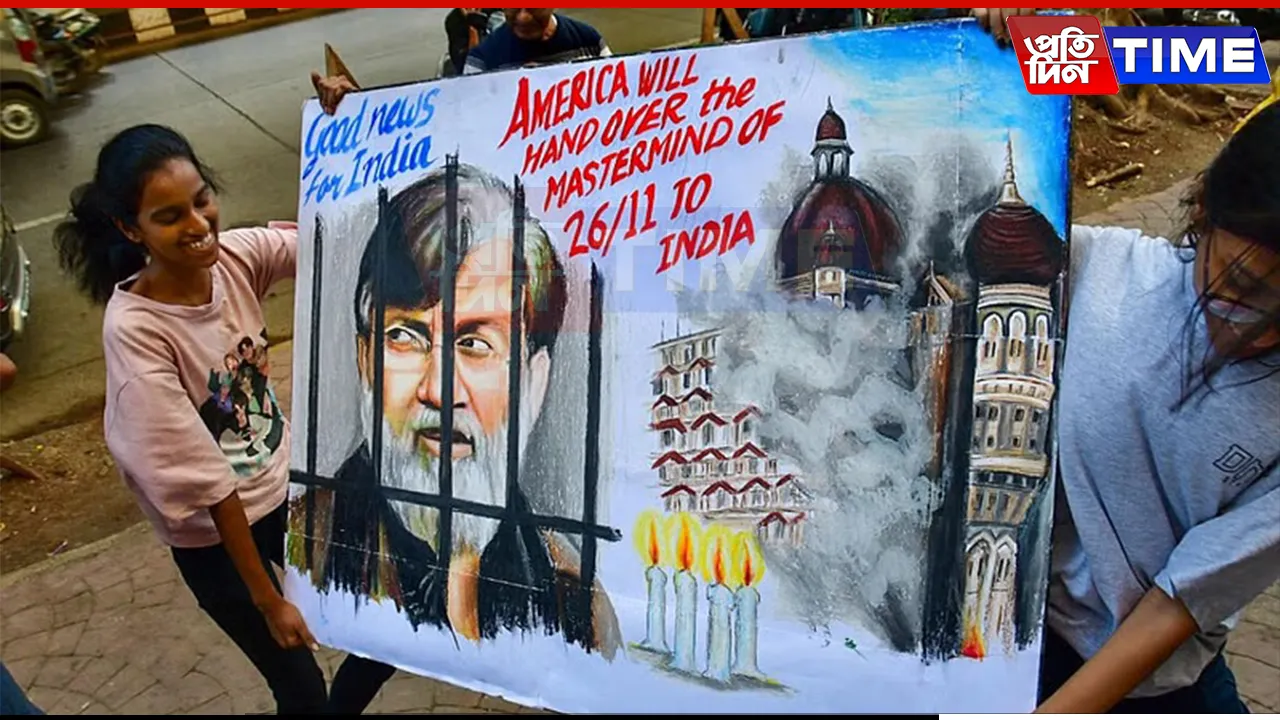 Good news
for India
AMERICA WILL
HAND OVER the
MASTERMIND OF
26/11 TO
INDIA
প্রতি
দিন
TIME